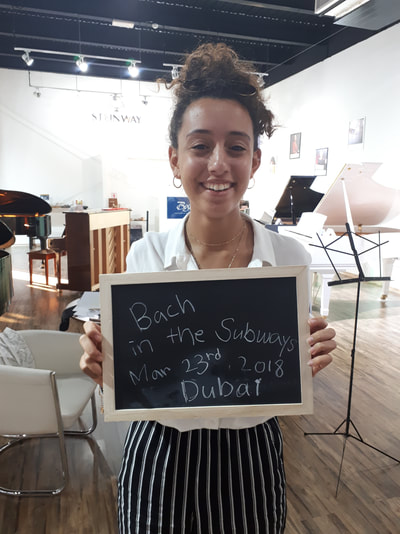 STEINWAY
Bach
in the Subways
Mar 23rd, 2018
Dubai